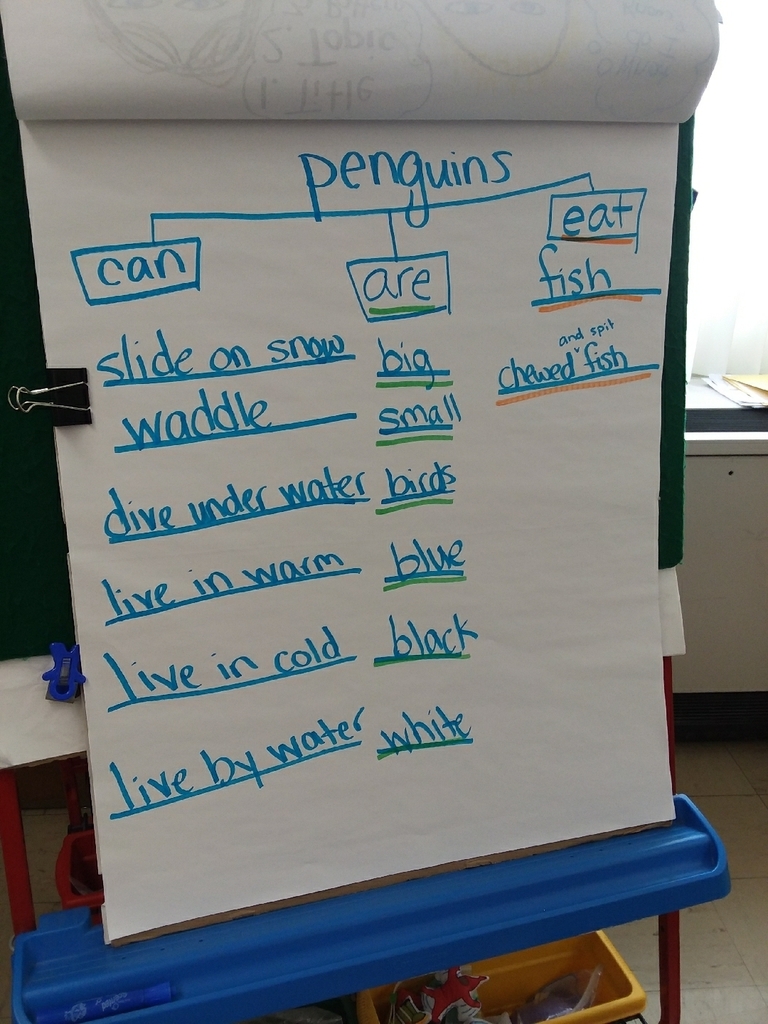 penguins
can
slide on snow
waddle
dive under water
live in warm
live in cold
live by water
are
big
small
birds
blue
black
white
eat
fish
and spit
chewed ˅ fish
1. Title
2. Topic